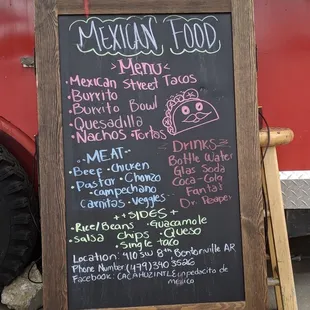 MEXICAN FOOD
>Menu<
•Mexican Street Tacos
•Burrito
•Burrito Bowl
•Quesadilla
•Nachos •Tortas
..MEAT..
Beef •Chicken
•Pastor •Chorizo
•campechano
Carnitas •Veggies
DRINKS
Bottle Water
Glas Soda
Coca-Cola
Fanta!
Dr. Peaper
++SIDES++
•Rice/Beans •Guacamole
•salsa chips •Queso
•Single taco
Location: 410 SW 8th Bentonville AR
Phone Number (479) 340 3526
Facebook: CACAHUZINTLE un pedacito de
Mexico